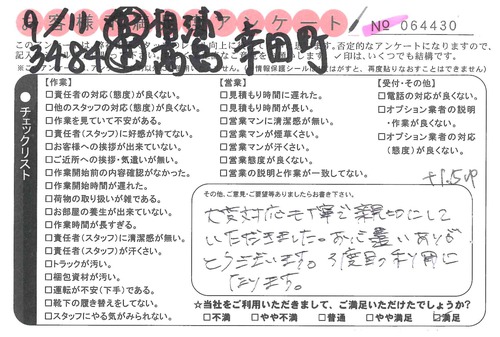 お客様 アンケート
№ 064430
9/11
3484 高島 幸田町
否定的なアンケートになりますので、
✓印は、いくつでも結構です。
情報保護シール
再度貼りなおすことはできません)
チェックリスト
【作業】
□責任者の対応(態度)が良くない。
□他のスタッフの対応(態度)が良くない。
□作業を見ていて不安がある。
□責任者(スタッフ)に好感が持てない。
□お客様への挨拶が出来ていない。
□ご近所への挨拶・気遣いが無い。
□作業開始前の内容確認がなかった。
□作業開始時間が遅れた。
□荷物の取り扱いが雑である。
□お部屋の養生が出来ていない。
□作業時間が長すぎる。
□責任者(スタッフ)に清潔感が無い。
□責任者(スタッフ)が汗くさい。
□トラックが汚い。
□梱包資材が汚い。
□運転が不安(下手)である。
□靴下の履き替えをしてない。
□スタッフにやる気がみられない。
【営業】
□見積もり時間に遅れた。
□見積もり時間が長い。
□営業マンに清潔感が無い。
□営業マンが煙草くさい。
□営業マンが汗くさい。
□営業態度が良くない。
□営業の説明と作業が一致してない。
【受付・その他】
□電話の対応が良くない。
□オプション業者の説明
・作業が良くない。
□オプション業者の対応
(態度)が良くない。
その他、ご意見・ご要望等ありましたらお書き下さい。
大変対応も丁寧で親切にして
いただきました。お心遣いありが
とうございます。3度目の利用に
なります。
☆当社をご利用いただきまして、ご満足いただけたでしょうか?
□不満 □やや不満 □普通 □やや満足 ☑満足